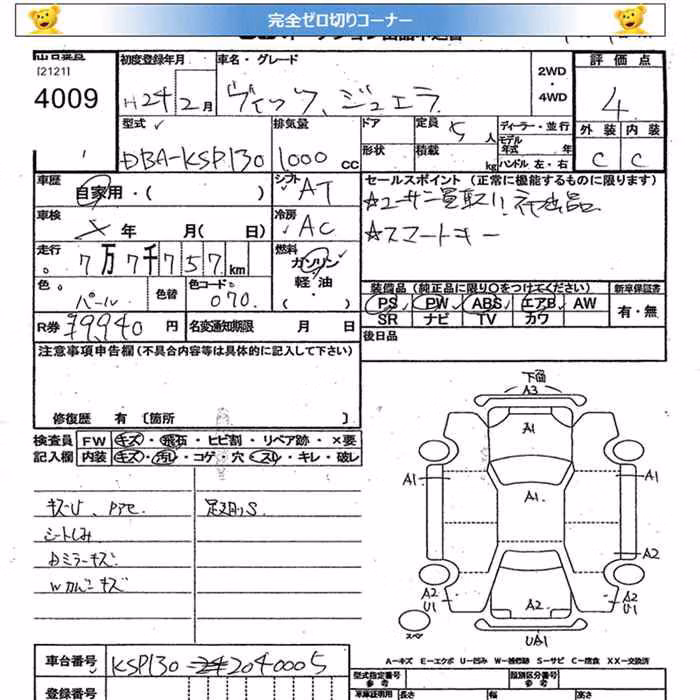 完全ゼロ切りコーナー
[2121]
4009
初度登録年月
H24年2月
車名・グレード
ヴィッツ ジュエラ
2WD
・
4WD
評価点
4
外装 内装
C C
型式
DBA-KSP130
排気量
1000 CC
ドア
形状
定員 5人
積載 kg
ディーラー・並行
モデル
年式 年
ハンドル 左・右
車歴
自家用・( )
シフト
AT
セールスポイント (正常に機能するものに限ります)
☆ユーザー買取り!初出品
☆スマートキー
車検
× 年 月( 日)
冷房
AC
走行
7万7千757km
燃料
ガソリン
軽油
( ・ )
色
パール
色替
色コード
070
装備品 (純正品に限り○をつけてください)
PS PW ABS エアB AW
SR ナビ TV カワ
新車保証書
有・無
R券 ¥9,940 円
名変通知期限 月 日
後日品
注意事項申告欄(不具合内容等は具体的に記入して下さい)
修復歴 有 〔箇所 〕
検査員
記入欄
FW キズ・飛石・ヒビ割・リペア跡・×要
内装 キズ・汚れ・コゲ・穴・スレ・キレ・破レ
キズU、
シートしみ
Dミラーキズ
下角
A3
A1
A1
A1
A1
A2
A2
U1
A2
A2
U1
UA1
スペア
A－キズ E－エクボ U－凹み W－補修跡 S－サビ C－腐食 XX－交換済
車台番号
KSP130-2040005
登録番号
型式指定番号
参考
類別区分番号
参考
車庫証明用
長さ 幅 高さ